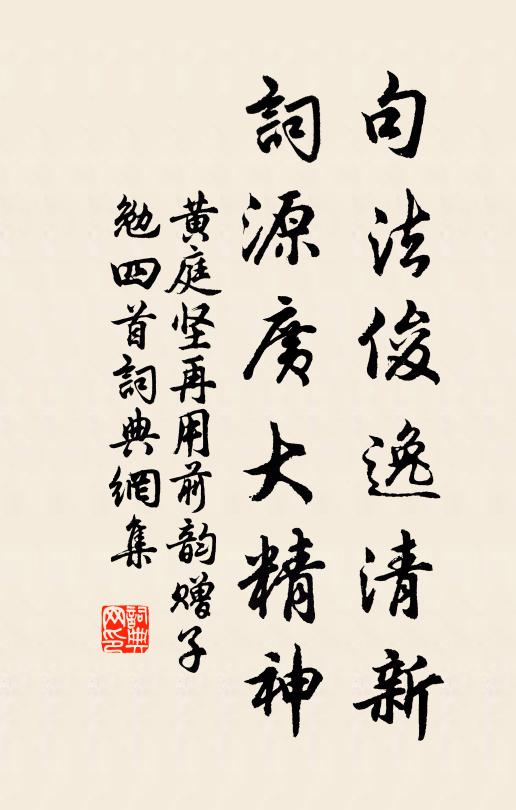 句法俊逸清新
詞源廣大精神
黄庭坚再用前韵赠子
勉四首詞典網集
詞典
网印